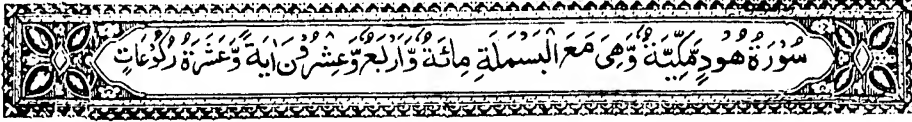 سُوْرَةُ هُوْدٍ مَّكِّيَّةٌ وَّهِيَ مَعَ الْبَسْمَلَةِ مِائَةٌ وَّاَرْبَعٌ وَّعِشْرُوْنَ اٰيَةً وَّعَشَرَةُ رُكُوْعَاتٍ